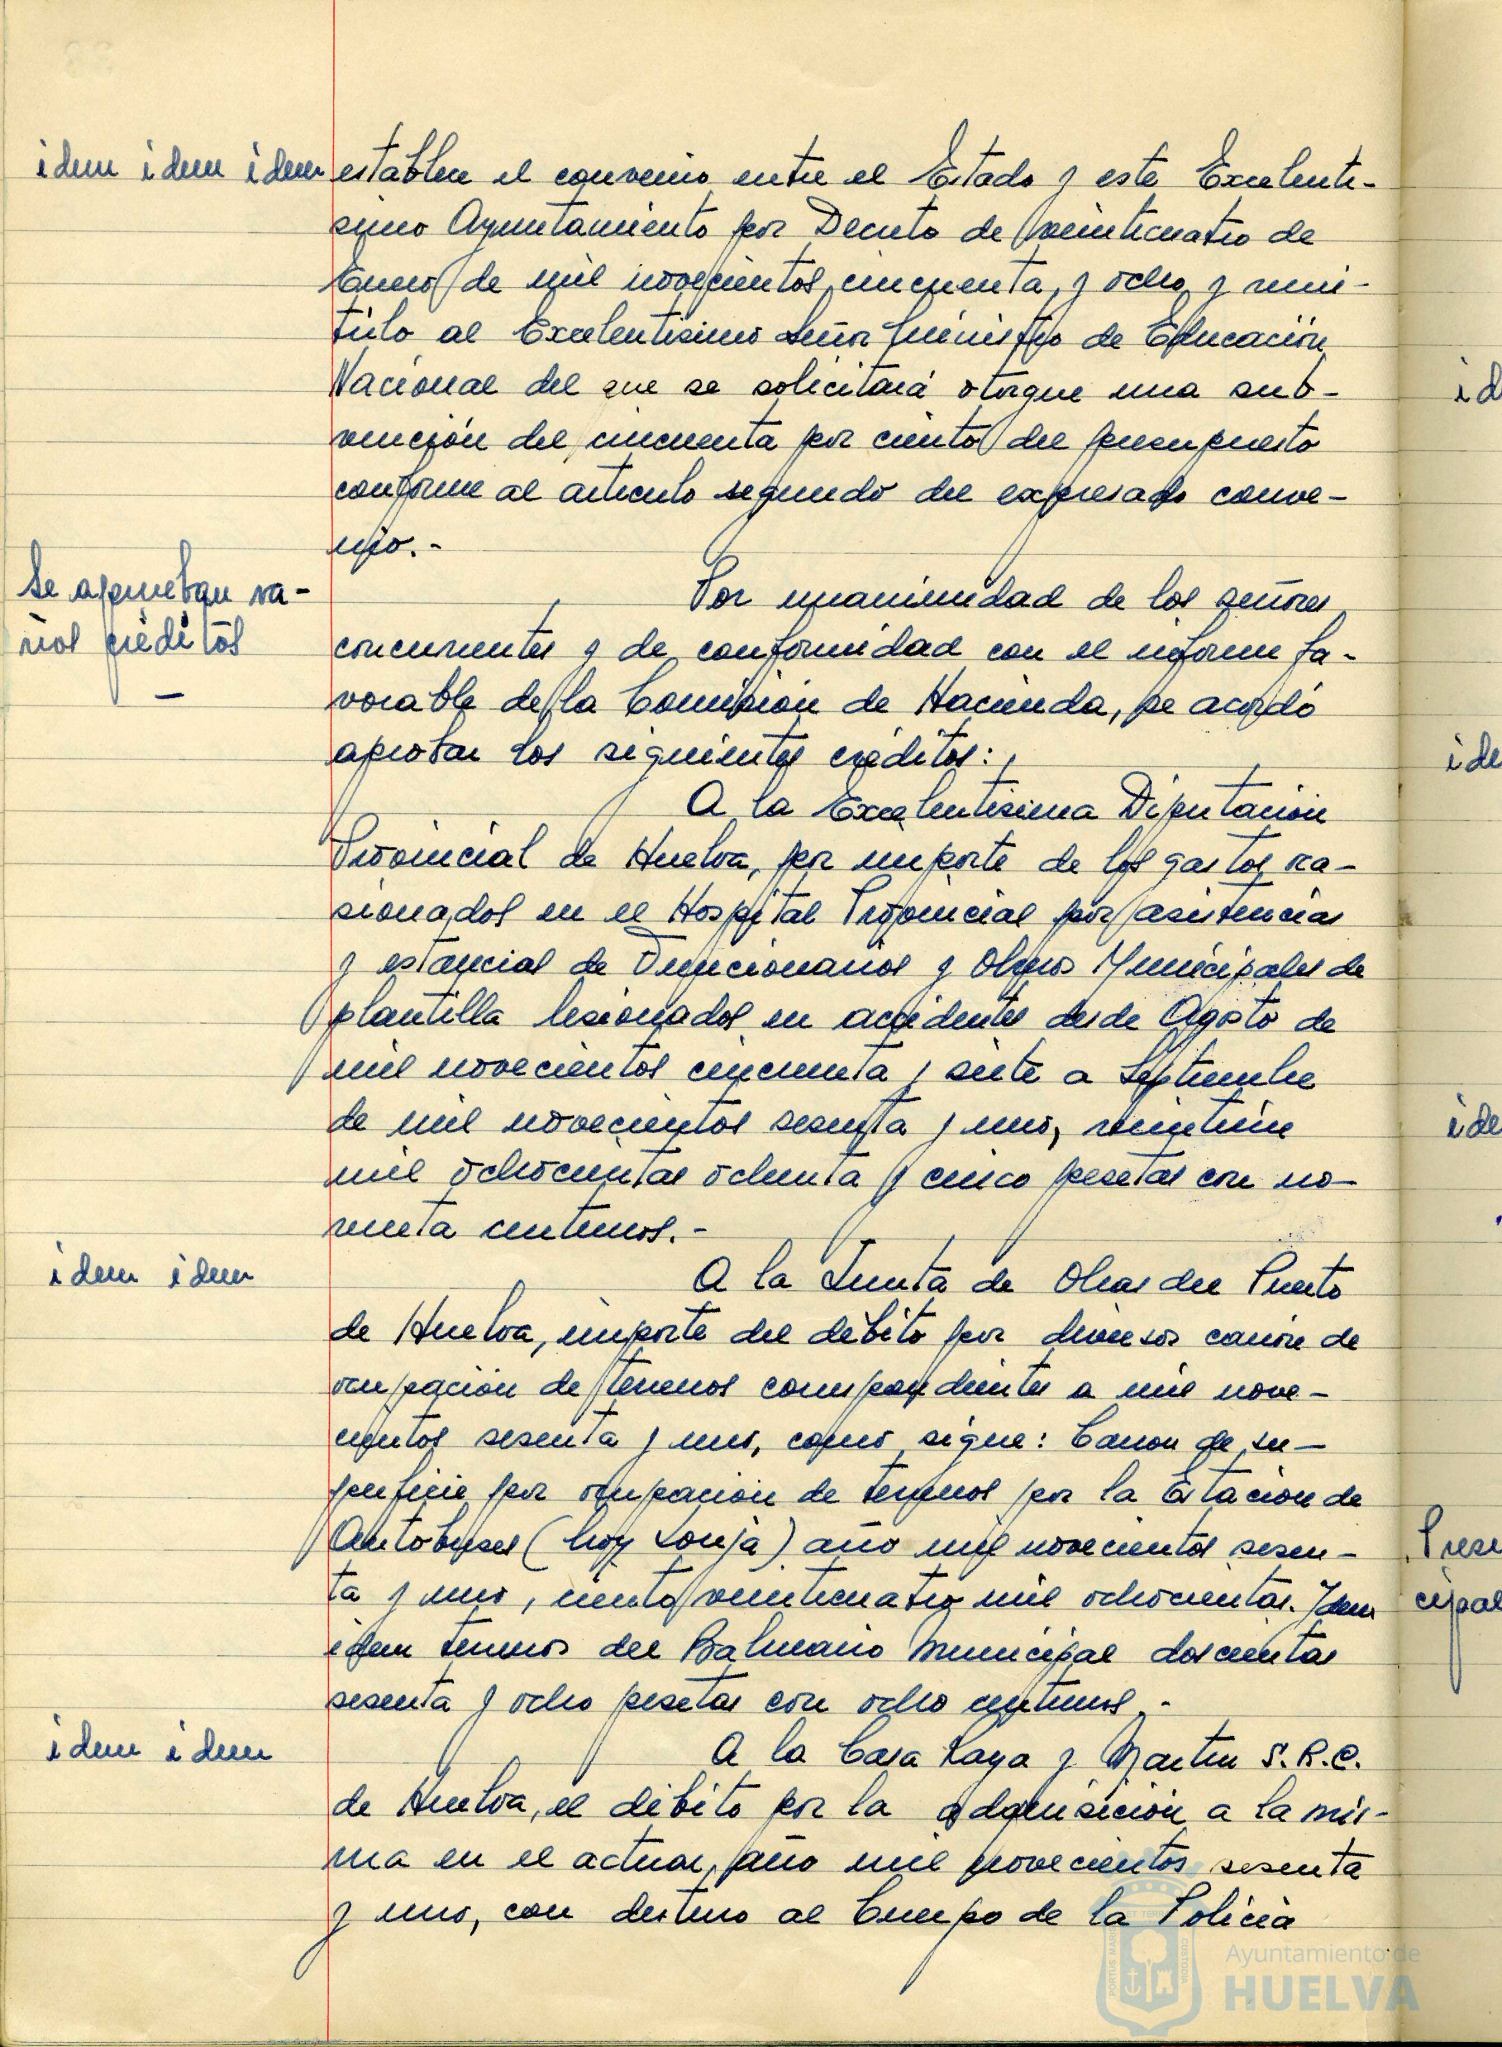 idem idem idem
establece el convenio entre el Estado y este Excelentí-
simo Ayuntamiento por Decreto de veinticuatro de
Enero de mil novecientos cincuenta y ocho y remi-
tirlo al Excelentisimo Señor Ministro de Educación
Nacional del que se solicitará otorgue una sub-
vención del cincuenta por ciento del presupuesto
conforme al articulo segundo del expresado conve-
nio.-
Se aprueban va-
rios créditos
Por unanimidad de los señores
concurrentes y de conformidad con el informe fa-
vorable de la Comisión de Hacienda, se acordó
aprobar los siguientes créditos:
A la Excelentisima Diputación
Provincial de Huelva, por importe de los gastos oca-
sionados en el Hospital Provincial por asistencias
y estancias de Funcionarios y Obreros Municipales de
plantilla lesionados en accidentes desde Agosto de
mil novecientos cincuenta y siete a Septiembre
de mil novecientos sesenta y uno, veintiún
mil ochocientas ochenta y cinco pesetas con no-
venta centimos.-
idem idem
A la Junta de Obras del Puerto
de Huelva, importe del débito por diversos canon de
ocupación de terrenos correspondientes a mil nove-
cientos sesenta y uno, como sigue: Canon de su-
perficie por ocupación de terrenos por la Estación de
Autobuses (hoy Lonja) año mil novecientos sesen-
ta y uno, ciento veinticuatro mil ochocientas. Idem
idem terrenos del Balneario Municipal doscientas
sesenta y ocho pesetas con ocho centimos.-
idem idem
A la Casa Raya y Martin S.R.C.
de Huelva, el débito por la adquisición a la mis-
ma en el actual año mil novecientos sesenta
y uno, con destino al Cuerpo de la Policia
id
ide
ide
Prese
cipal
Ayuntamiento de
HUELVA